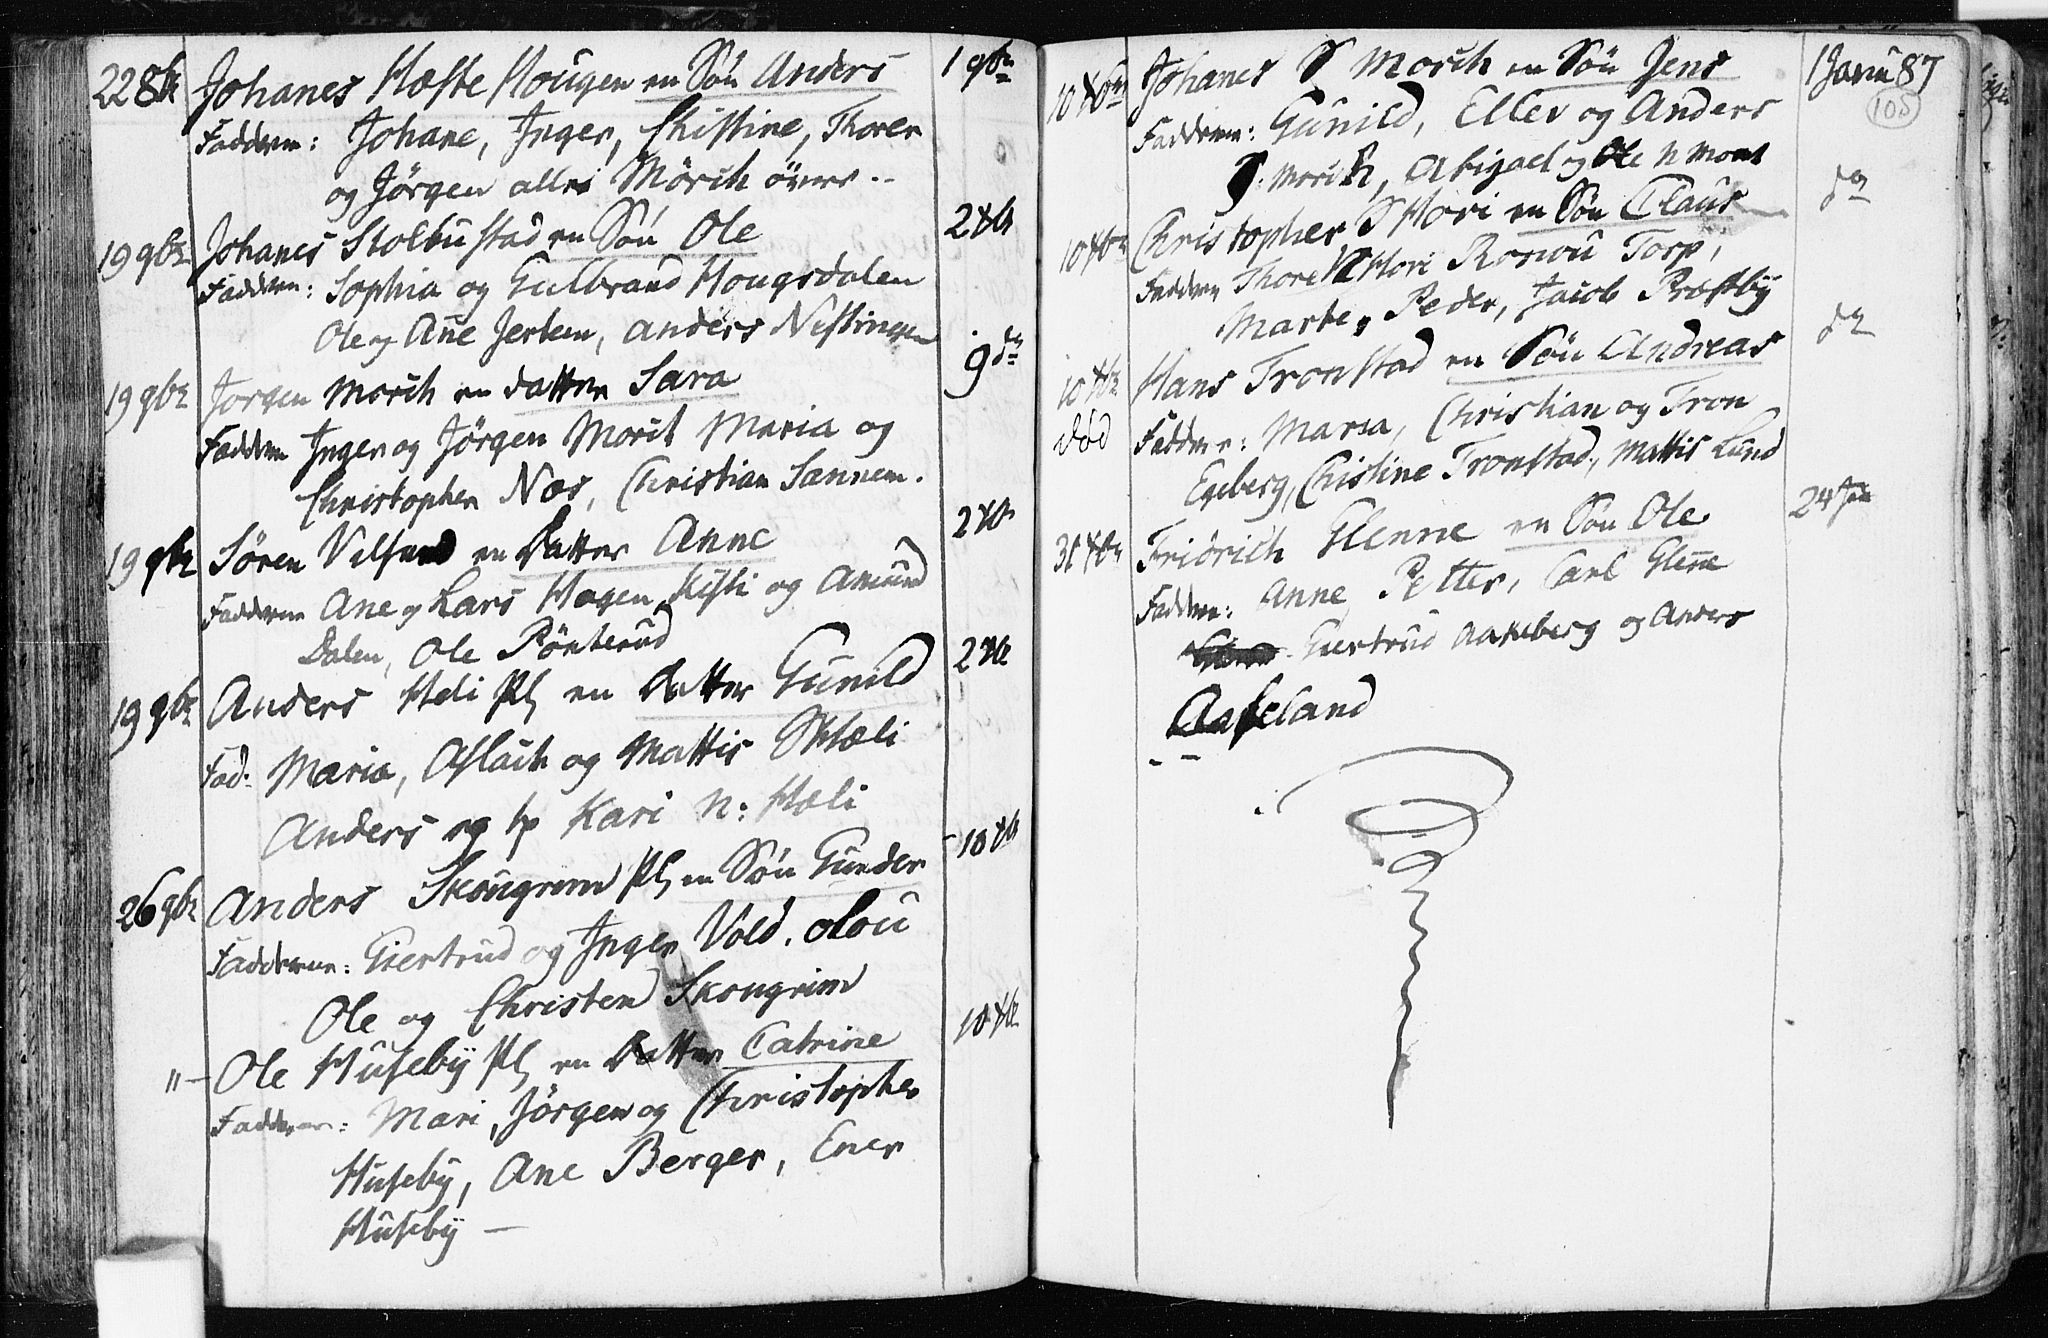 22 8br Johanes Hæste Hougen en Sön Anders 1 9br
Faddern: Johane, Inger, Christine, Thorer
og Jörgen alles Mörch övere
19 9br Johanes Stolbustad en Sön Ole 2 Xbr
Faddern: Sophia og Gulbrand Hougsdalen
Ole og Ane Jerlem, Anders Nistingen
19 9br Jorgen Morch en datter Sara 9 do
Faddern Inger og Jörgen Morch Maria og
Christopher Næs, Christian Sannem.
19 9br Sören en Datter Anne 2 Xbr
Faddern Ane og Lars Hagen Kisti og Amund
Dalen, Ole Pönterud
19 9br Anders Heli Pl en Datter Gunild 2 Xbr
Fad: Maria, Aslach og Mattis
Anders og Kari N: Hæli
26 9br Anders Skougrim Pl en Sön Gunder 10 Xbr
Fadderne: Giertrud og Inger Vold. olou
Ole og Christen Skougrim
"– Ole Huseby Pl en Datter Catrine 10 Xbr
Fadderne: Mari, Jörgen og Christopher
Huseby, Ane Berger, Ener
Huseby –
10 Xbr Johanes S Morch en Sön Jens 1 Janu 87
105
Faddern: Gunild, Eller og Anders
S: Morch, Abigael og Ole N Morch
10 Xbr Christopher S Hori en Sön Claus do
Faddern Thore N Hori Torp,
Marte, Peder, Jacob Præstby
10 Xbr Hans Tronstad en Sön Andreas do
död Faddere: Maria, Christian og Tron
Egeberg, Christine Tronstad, Mattis Lund
31 Xbr Fridrich Glenne en Sön Ole 24 Jan
Faddern: Anne, Petter, Carl Glene
Giertrud Aakeberg og Anders
Aaseland